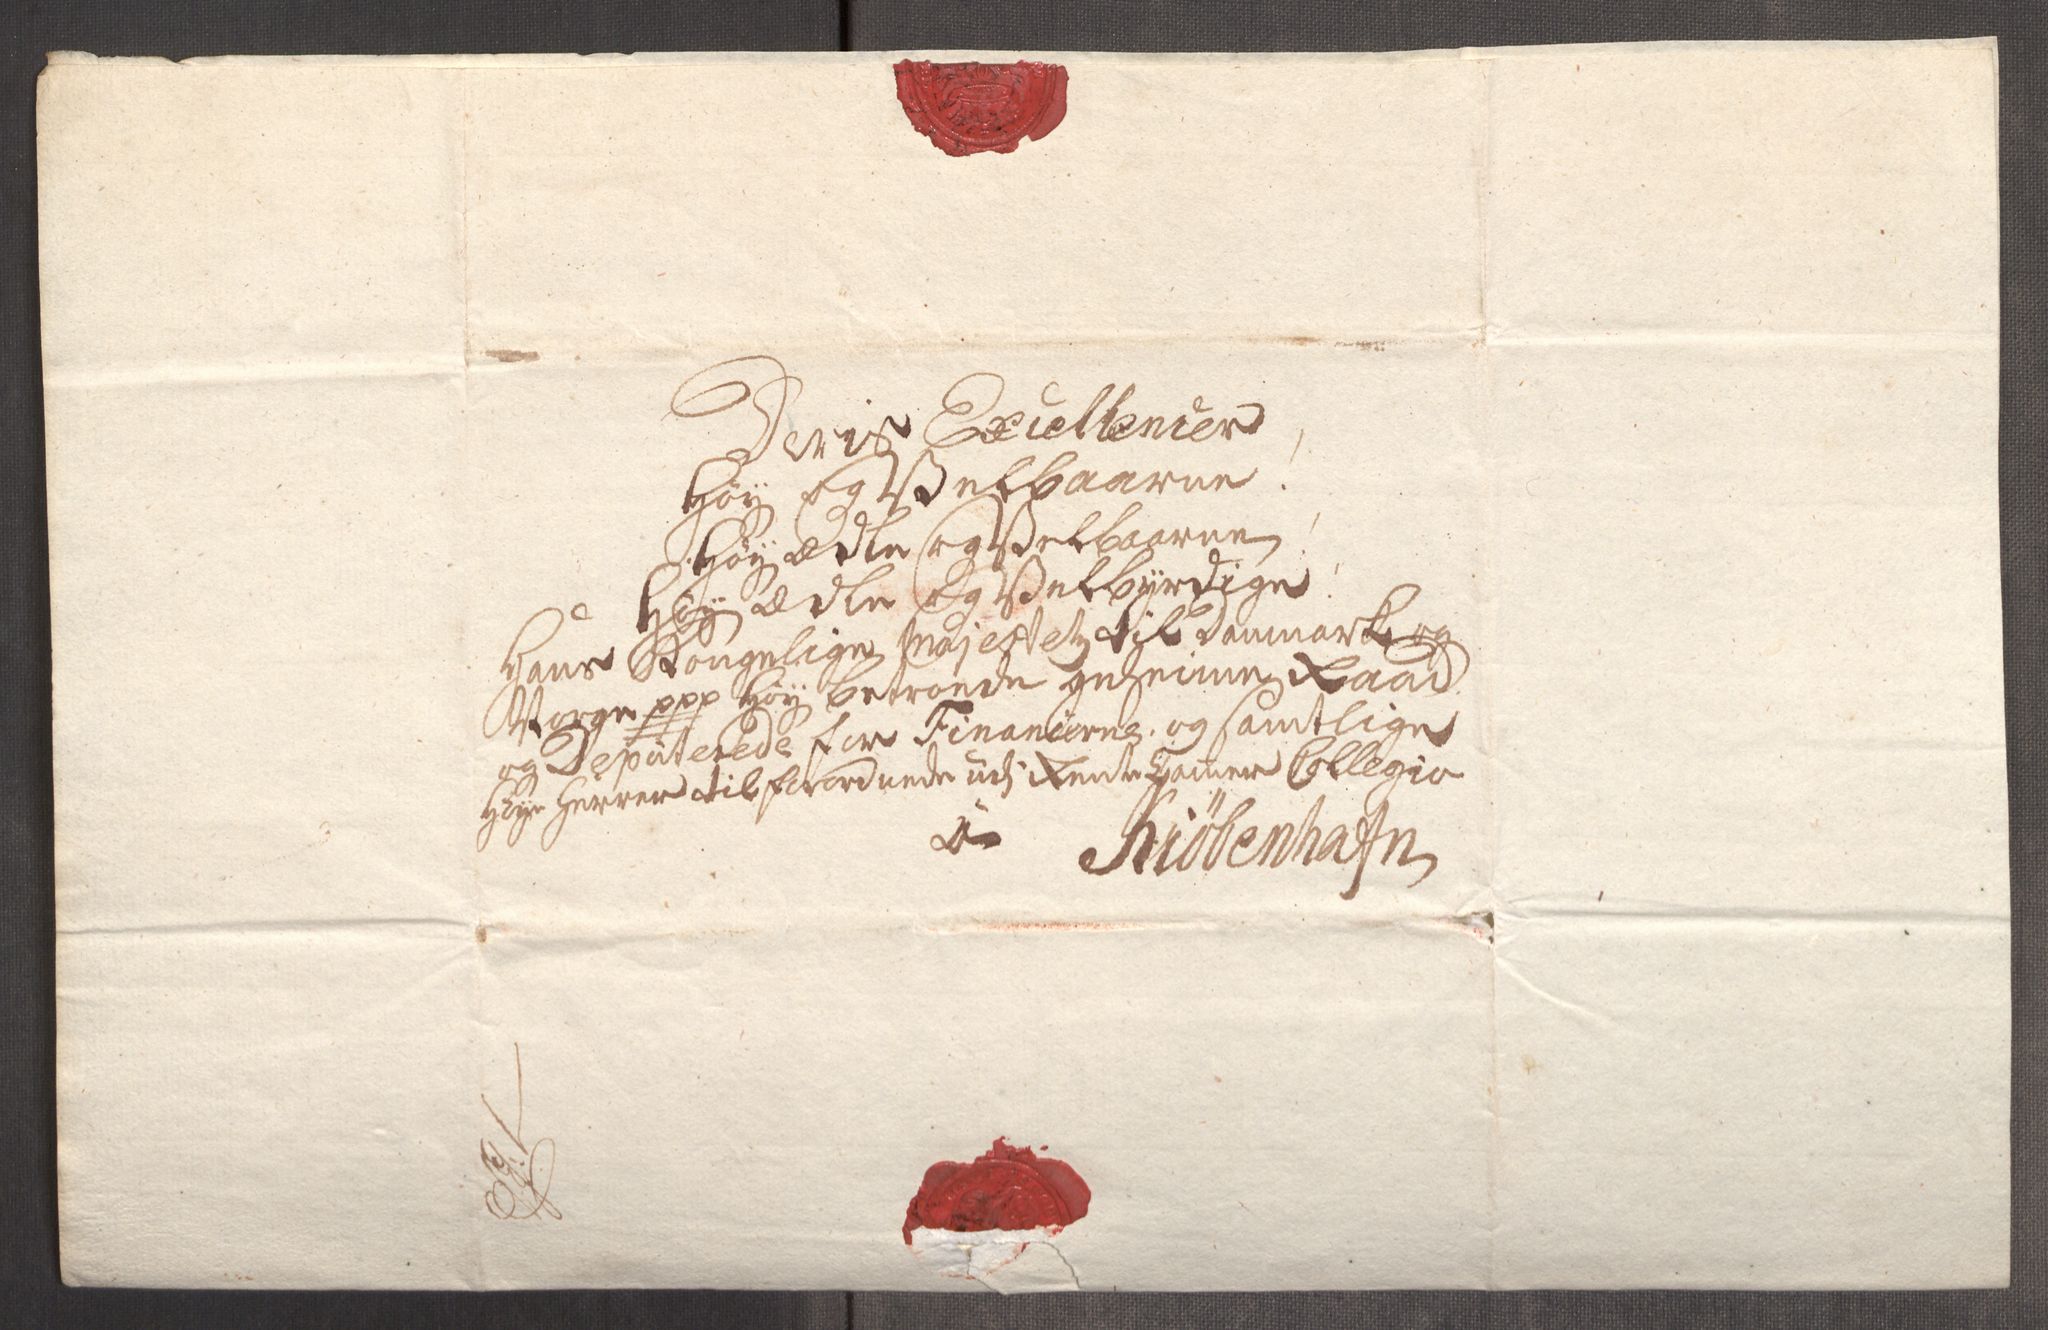 Deris Excellencer
Høy og Velbaarne!
Høy ædle og Velbaarne!
Høy ædle og Velbyrdige!
Hans Kongelige Majestetz til Danmark og
Norge ppp Høy betroede geheime Raad
og Deputerede for Financierne. og samtlige
Høye Herrer tilforordnede udj Rente Camer Collegio
a Kiøbenhafn